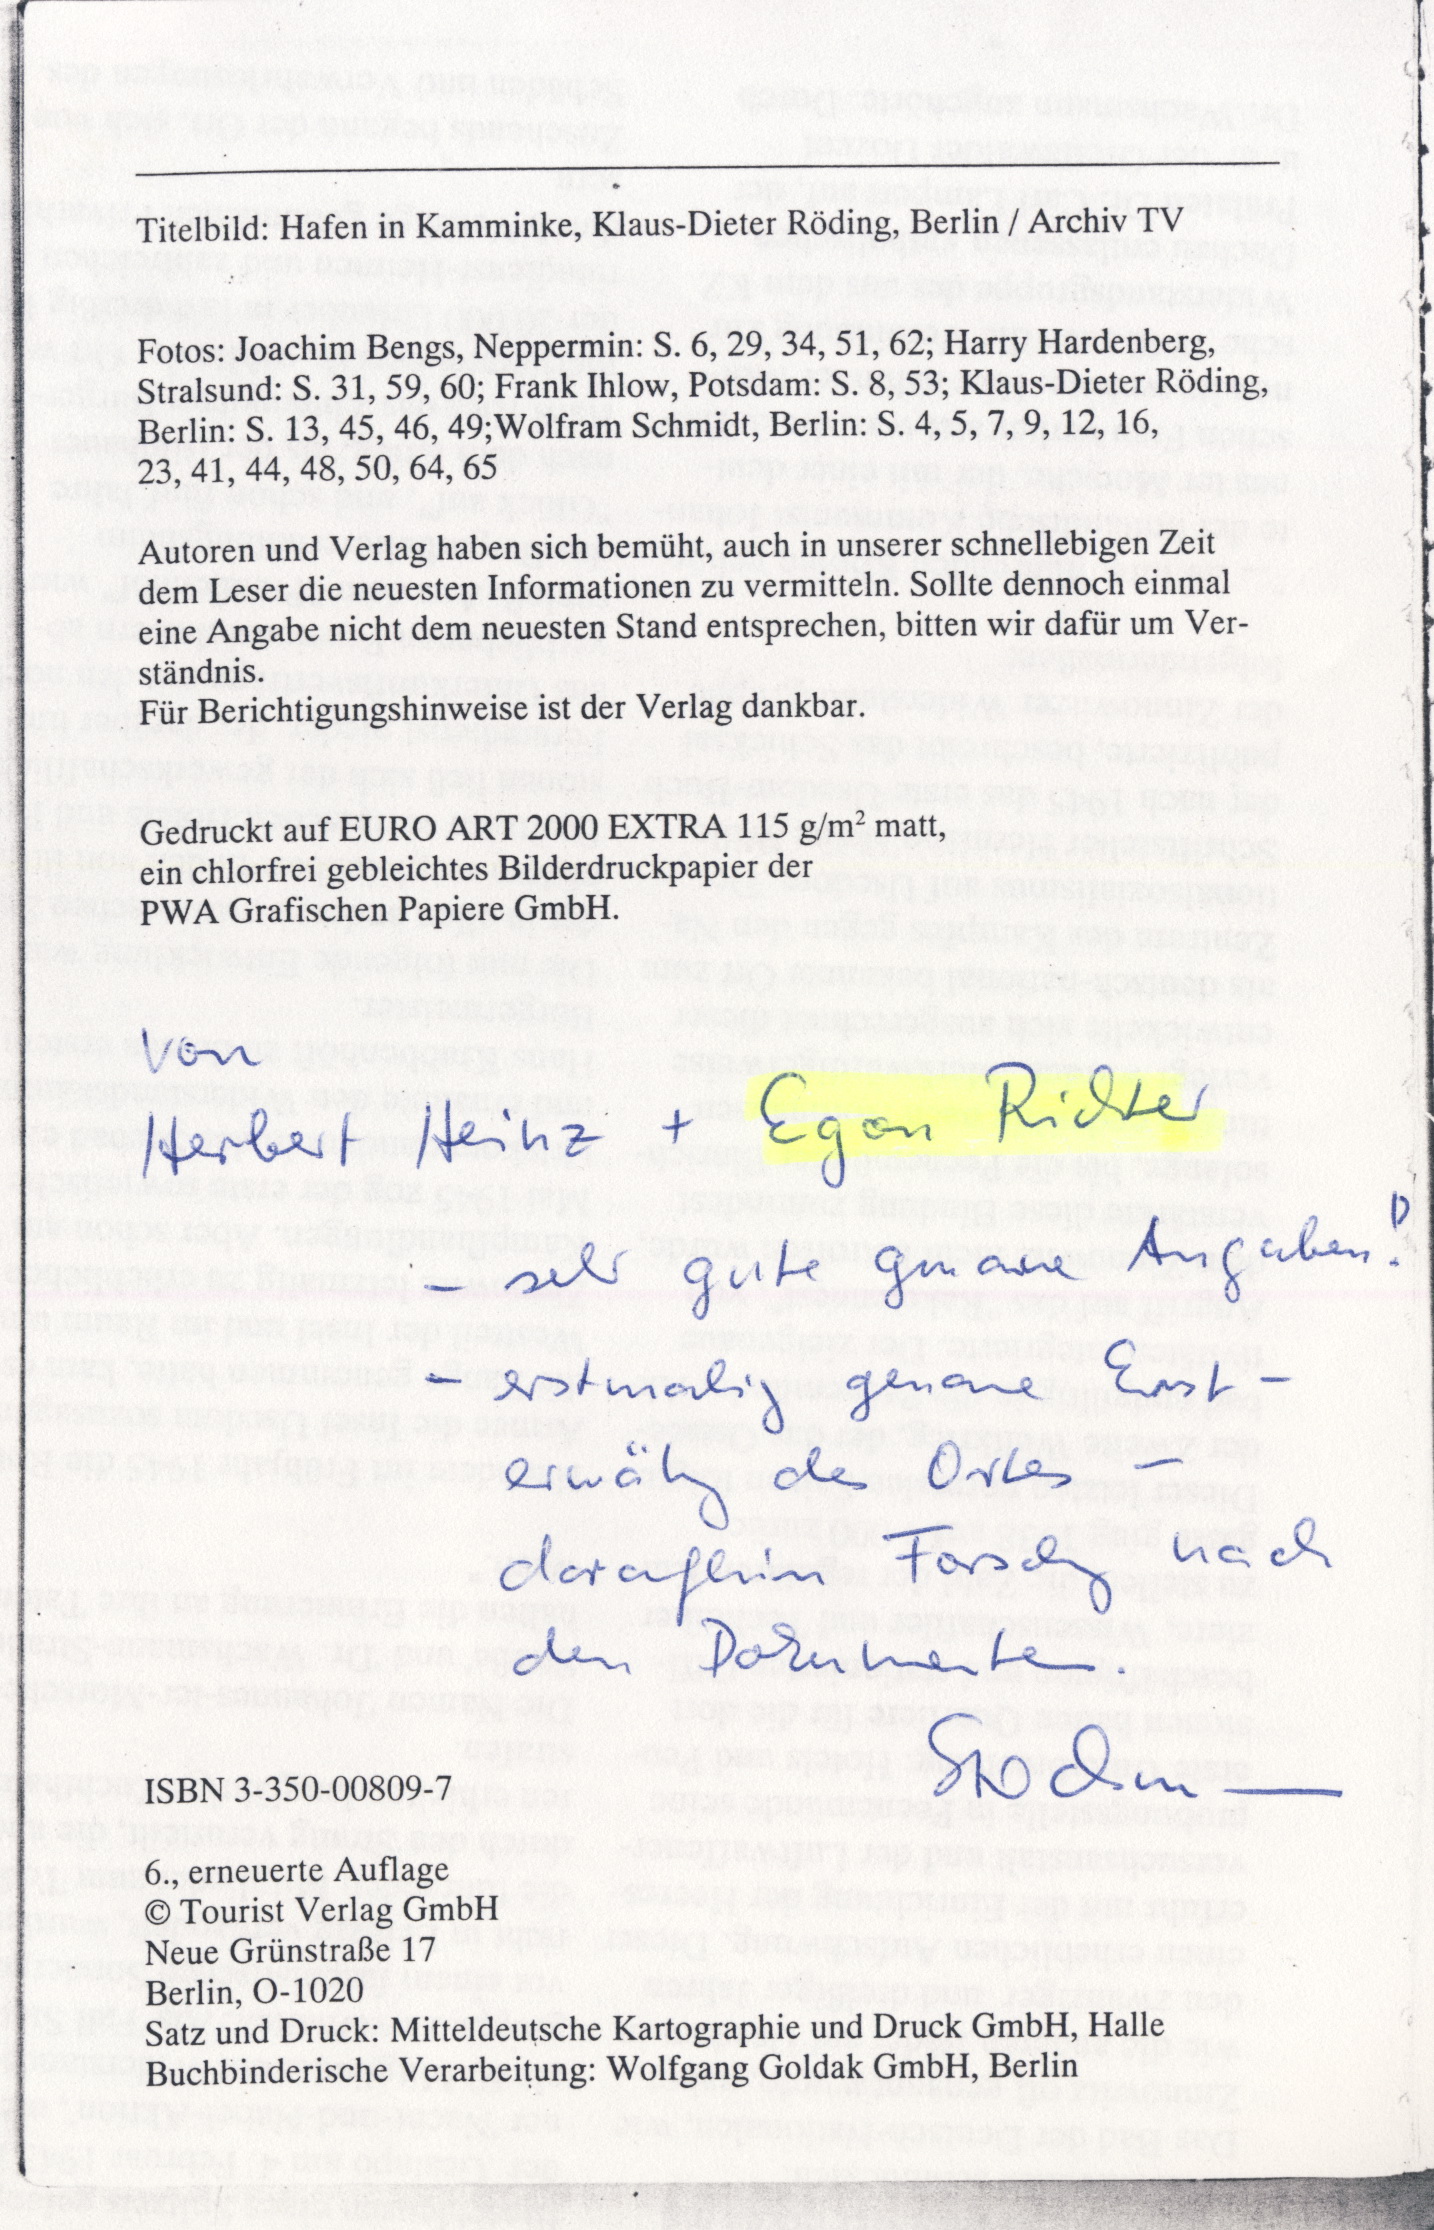 Titelbild: Hafen in Kamminke, Klaus-Dieter Röding, Berlin / Archiv TV
Fotos: Joachim Bengs, Neppermin: S. 6, 29, 34, 51, 62; Harry Hardenberg,
Stralsund: S. 31, 59, 60; Frank Ihlow, Potsdam: S. 8, 53; Klaus-Dieter Röding,
Berlin: S. 13, 45, 46, 49;Wolfram Schmidt, Berlin: S. 4, 5, 7, 9, 12, 16,
23, 41, 44, 48, 50, 64, 65
Autoren und Verlag haben sich bemüht, auch in unserer schnellebigen Zeit
dem Leser die neuesten Informationen zu vermitteln. Sollte dennoch einmal
eine Angabe nicht dem neuesten Stand entsprechen, bitten wir dafür um Ver-
ständnis.
Für Berichtigungshinweise ist der Verlag dankbar.
Gedruckt auf EURO ART 2000 EXTRA 115 g/m² matt,
ein chlorfrei gebleichtes Bilderdruckpapier der
PWA Grafischen Papiere GmbH.
von
Herbert Heinz + Egon Richter
- sehr gute genaue Angaben!
- erstmalig genaue Erst-
erwähg des Ortes -
daraufhin Forschg nach
den Dokumenten.
ISBN 3-350-00809-7
6., erneuerte Auflage
© Tourist Verlag GmbH
Neue Grünstraße 17
Berlin, O-1020
Satz und Druck: Mitteldeutsche Kartographie und Druck GmbH, Halle
Buchbinderische Verarbeitung: Wolfgang Goldak GmbH, Berlin